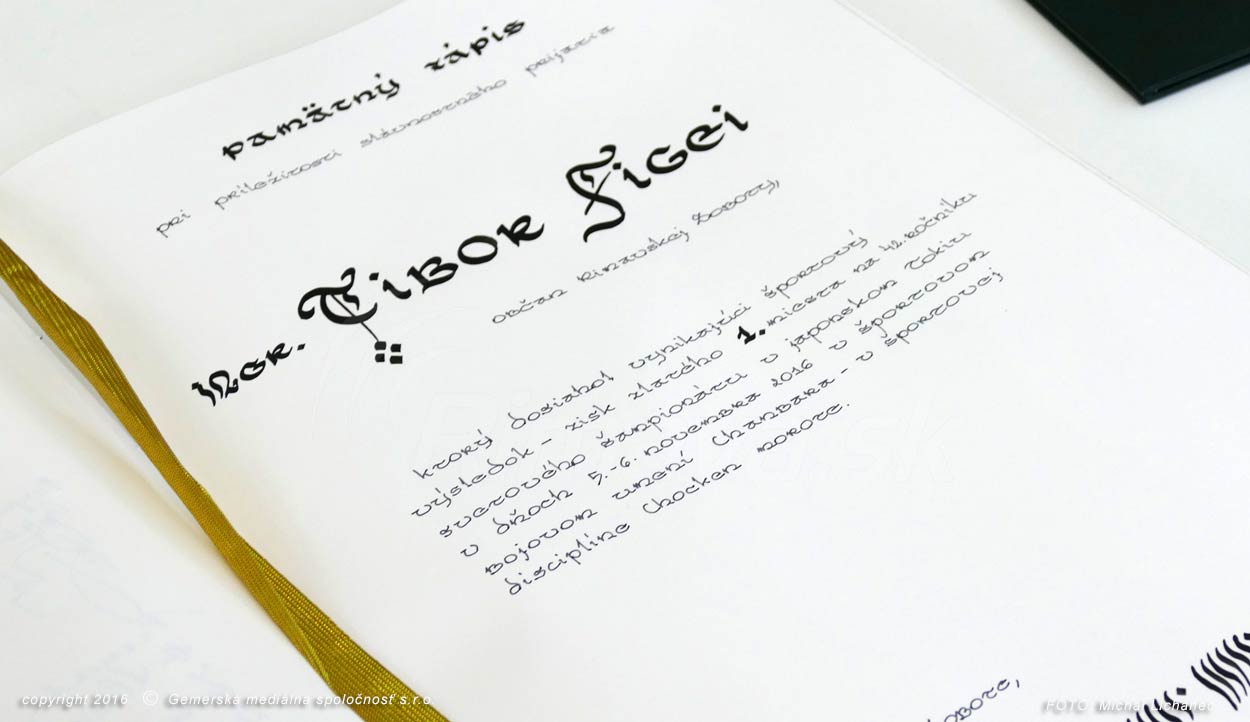 pamätný zápis
pri príležitosti slávnostného prijatia
Mgr. Tibor Figei
občan Rimavskej Soboty,
ktorý dosiahol vynikajúci športový
výsledok - zisk zlatého 1. miesta na 42. ročníku
svetového šampionátu v japonskom Tokiu
v dňoch 5.-6. novembra 2016 v športovom
bojovom umení Chanbara - v športovej
disciplíne Chocken morote.
Sobote,
copyright 2016 © Gemerská mediálna spoločnosť s.r.o
FOTO Michal Lichanec